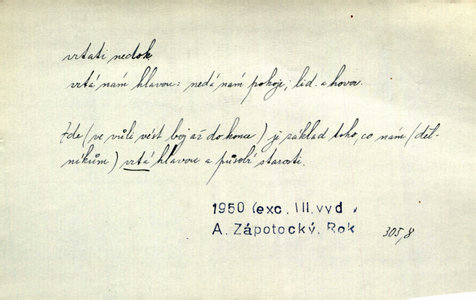 vrtati nedok
vrtá nám hlavou: nedá nám pokoje; lid. a hovor.
Zde (ve vůli vést boj až do konce) je základ toho, co nám (děl-
níkům) vrtá hlavou a působí starosti.
1950 (exc. III. vyd.
A. Zápotocký, Rok 305,8